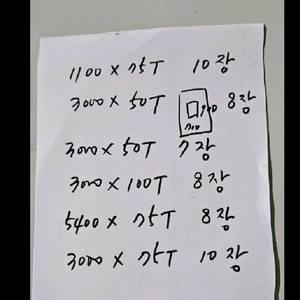 1100 × 75T 10장
3000 × 50T 8장
3000 × 50T 7장
3000 × 100T 8장
5400 × 75T 8장
3000 × 75T 10장